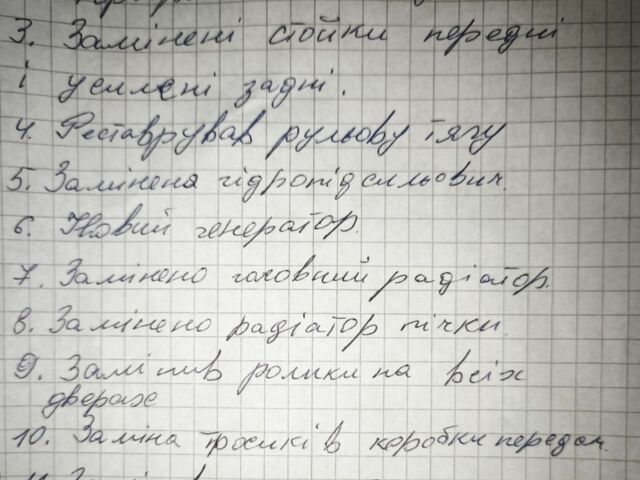 3. Замінені стойки передні
і усилені задні.
4. Реставрував рульову тягу
5. Замінена гідропідсильович.
6. Новий генератор.
7. Замінено головний радіатор.
8. Замінено радіатор пічки.
9. Замінив ролики на всіх
дверах
10. Заміна тросиків коробки передач.